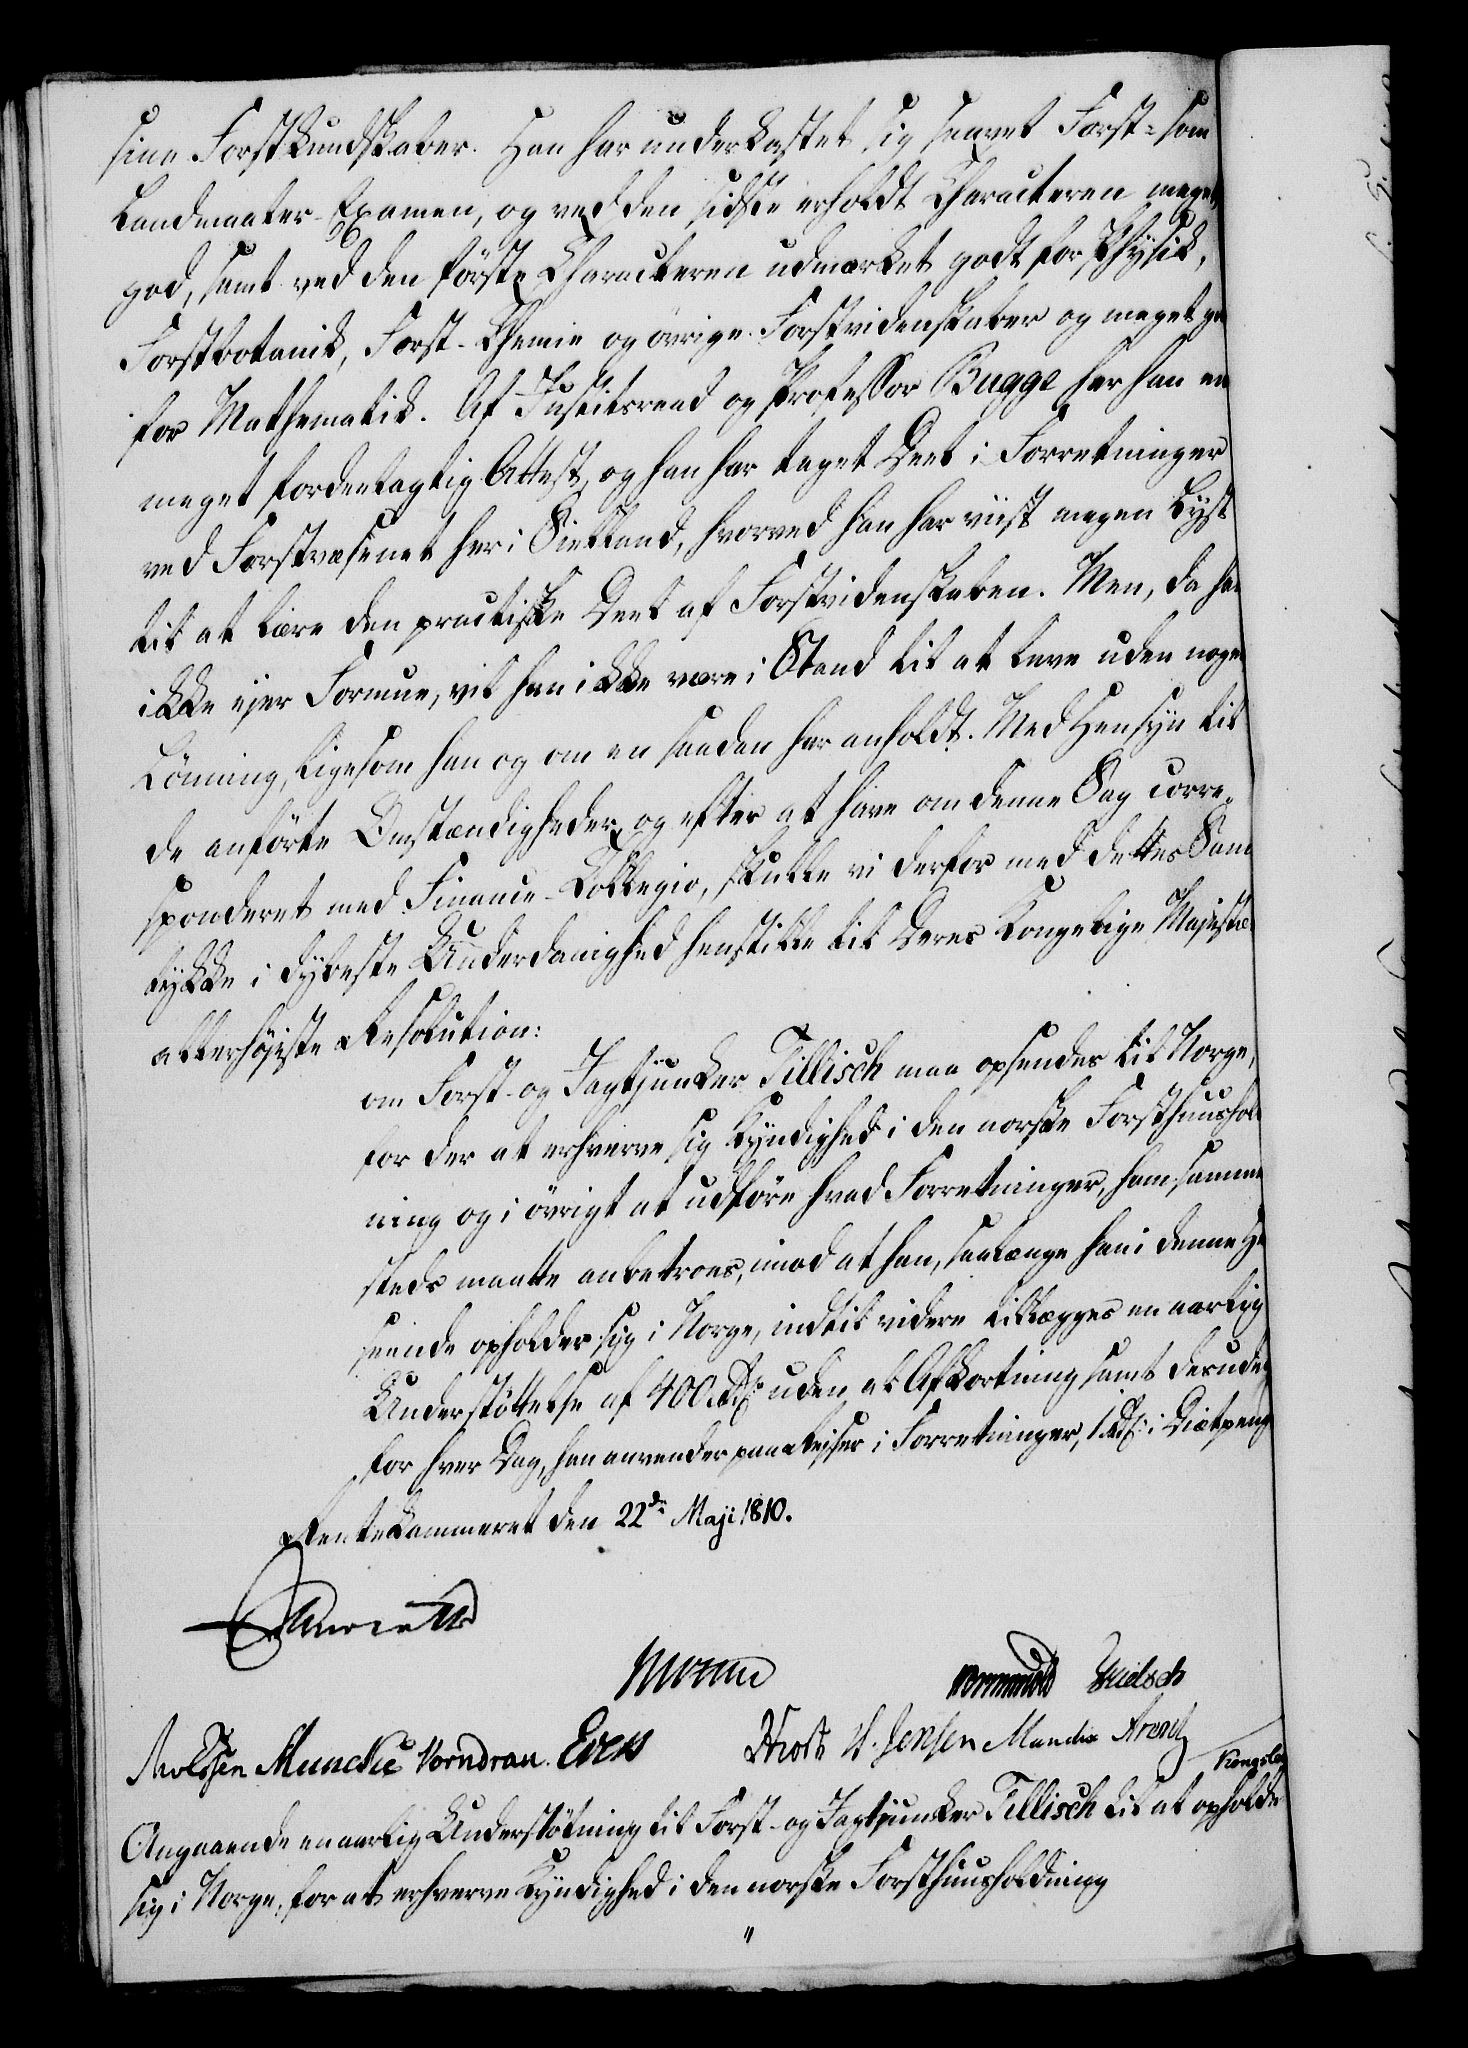 sine Forstkundskaber. Han har underkastet sig saavel Forst- som
Landmaaler-Examen, og ved den sidste erholdt Characteren meget
god, samt ved den første Characteren udmærket godt for Physik,
Forstbotanik, Forst-Chemie og øvrige Forstvidenskaber og meget go
for Mathematik. Af Justitsraad og Professor Bugge har han en
meget fordeelagtig Attest, og han har taget Deel i Forretninger
ved Forstvæsenet her i Siælland, hvorved han har viist megen Lyst
til at lære den practiske Deel af Forstvidenskaben. Men, da han
ikke ejer Formue, vil han ikke være i Stand til at leve uden nogen
Lønning, ligesom han og om en saadan har anholdt. Med Hensyn til
de anførte Omstændigheder og efter at have om denne Sag corre-
sponderet med Finance-Collegio, skulle vi derfor med dettes Sam
tykke i dybeste Underdanighed henstille til Deres Kongelige Majestæts
allerhøjeste Resolution:
om Forst- og Jagtjunker Tillisch maa opsendes til Norge,
for der at erhverve sig Kyndighed i den norske Forsthuushold
ning og i øvrigt at udføre hvad Forretninger, ham samme
steds maatte anbetroes, imod at han, saalænge han i denne He
seende opholder sig i Norge, indtil videre tillægges en aarlig
Understøttelse af 400 Rdl uden al Afkortning samt desuden
for hver Dag, han anvender paa Rejser i Forretninger, 1 Rdl i Diætpenge
Rentekammeret den 22de Maji 1810.
Monrad
Wormskiold
Knudsen Muncke Vorndran. Evers H. Jensen Munch Arentz
Angaaende en aarlig Understøtning til Forst- og Jagtjunker Tillisch til at opholde
sig i Norge, for at erhverve Kyndighed i den norske Forsthuusholdning
"